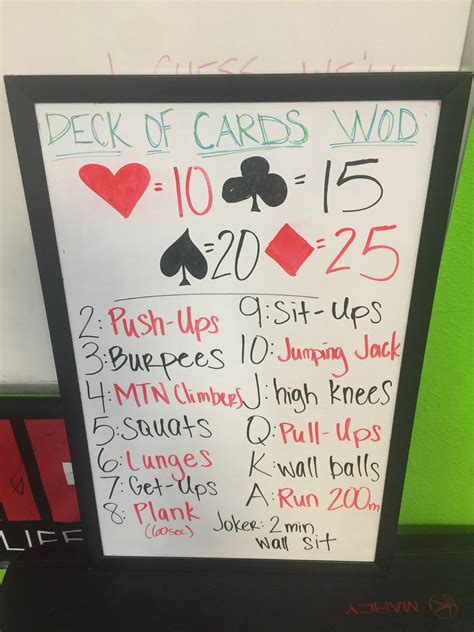 I GUESS WE'LL
DECK OF CARDS WOD
= 10 = 15
= 20 = 25
2: Push-Ups
3: Burpees
4: MTN Climbers
5: Squats
6: Lunges
7: Get-Ups
8: Plank
(60sec)
9: Sit-Ups
10: Jumping Jack
J: high knees
Q: Pull-Ups
K: wall balls
A: Run 200m
Joker: 2 min
wall sit
LIFE
MARCY